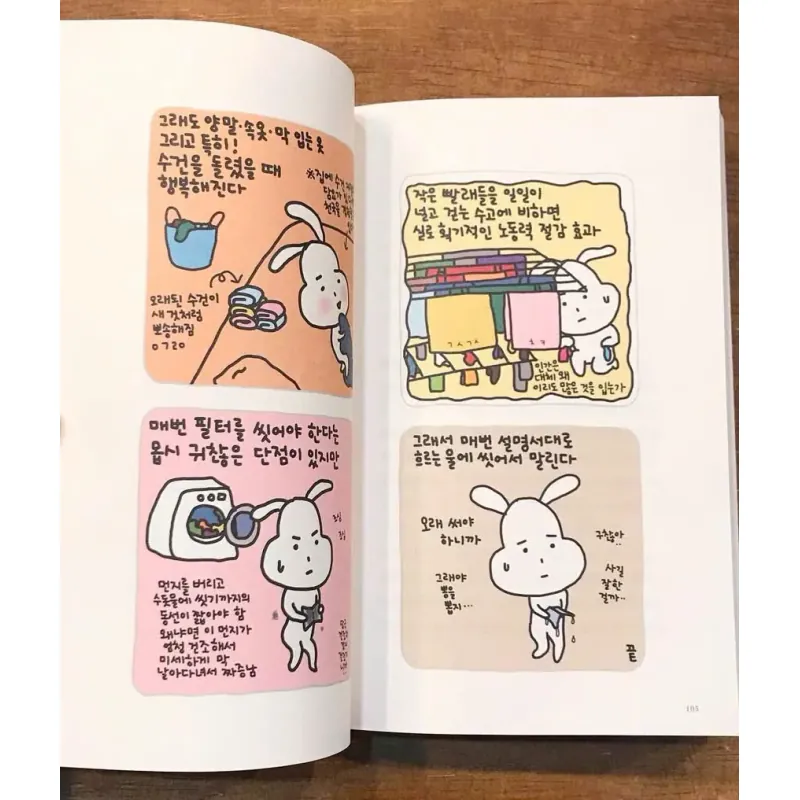 그래도 양말·속옷·막 입는 옷
그리고 특히!
수건을 돌렸을 때
행복해진다
※집에 수건
오래된 수건이
새 것처럼
뽀송해짐
ㅇㄱㄹㅇ
매번 필터를 씻어야 한다는
몹시 귀찮은 단점이 있지만
조심
조심
먼지를 버리고
수돗물에 씻기까지의
동선이 짧아야 함
왜냐면 이 먼지가
엄청 건조해서
미세하게 막
날아다녀서 짜증남
작은 빨래들을 일일이
널고 걷는 수고에 비하면
실로 획기적인 노동력 절감 효과
ㄱㅅㄱㅅ
ㅎㄱ
인간은
대체 왜
이리도 많은 것을 입는가
그래서 매번 설명서대로
흐르는 물에 씻어서 말린다
오래 써야
하니까
그래야
뽕을
뽑지...
귀찮아..
사길
잘한
걸까..
끝
105